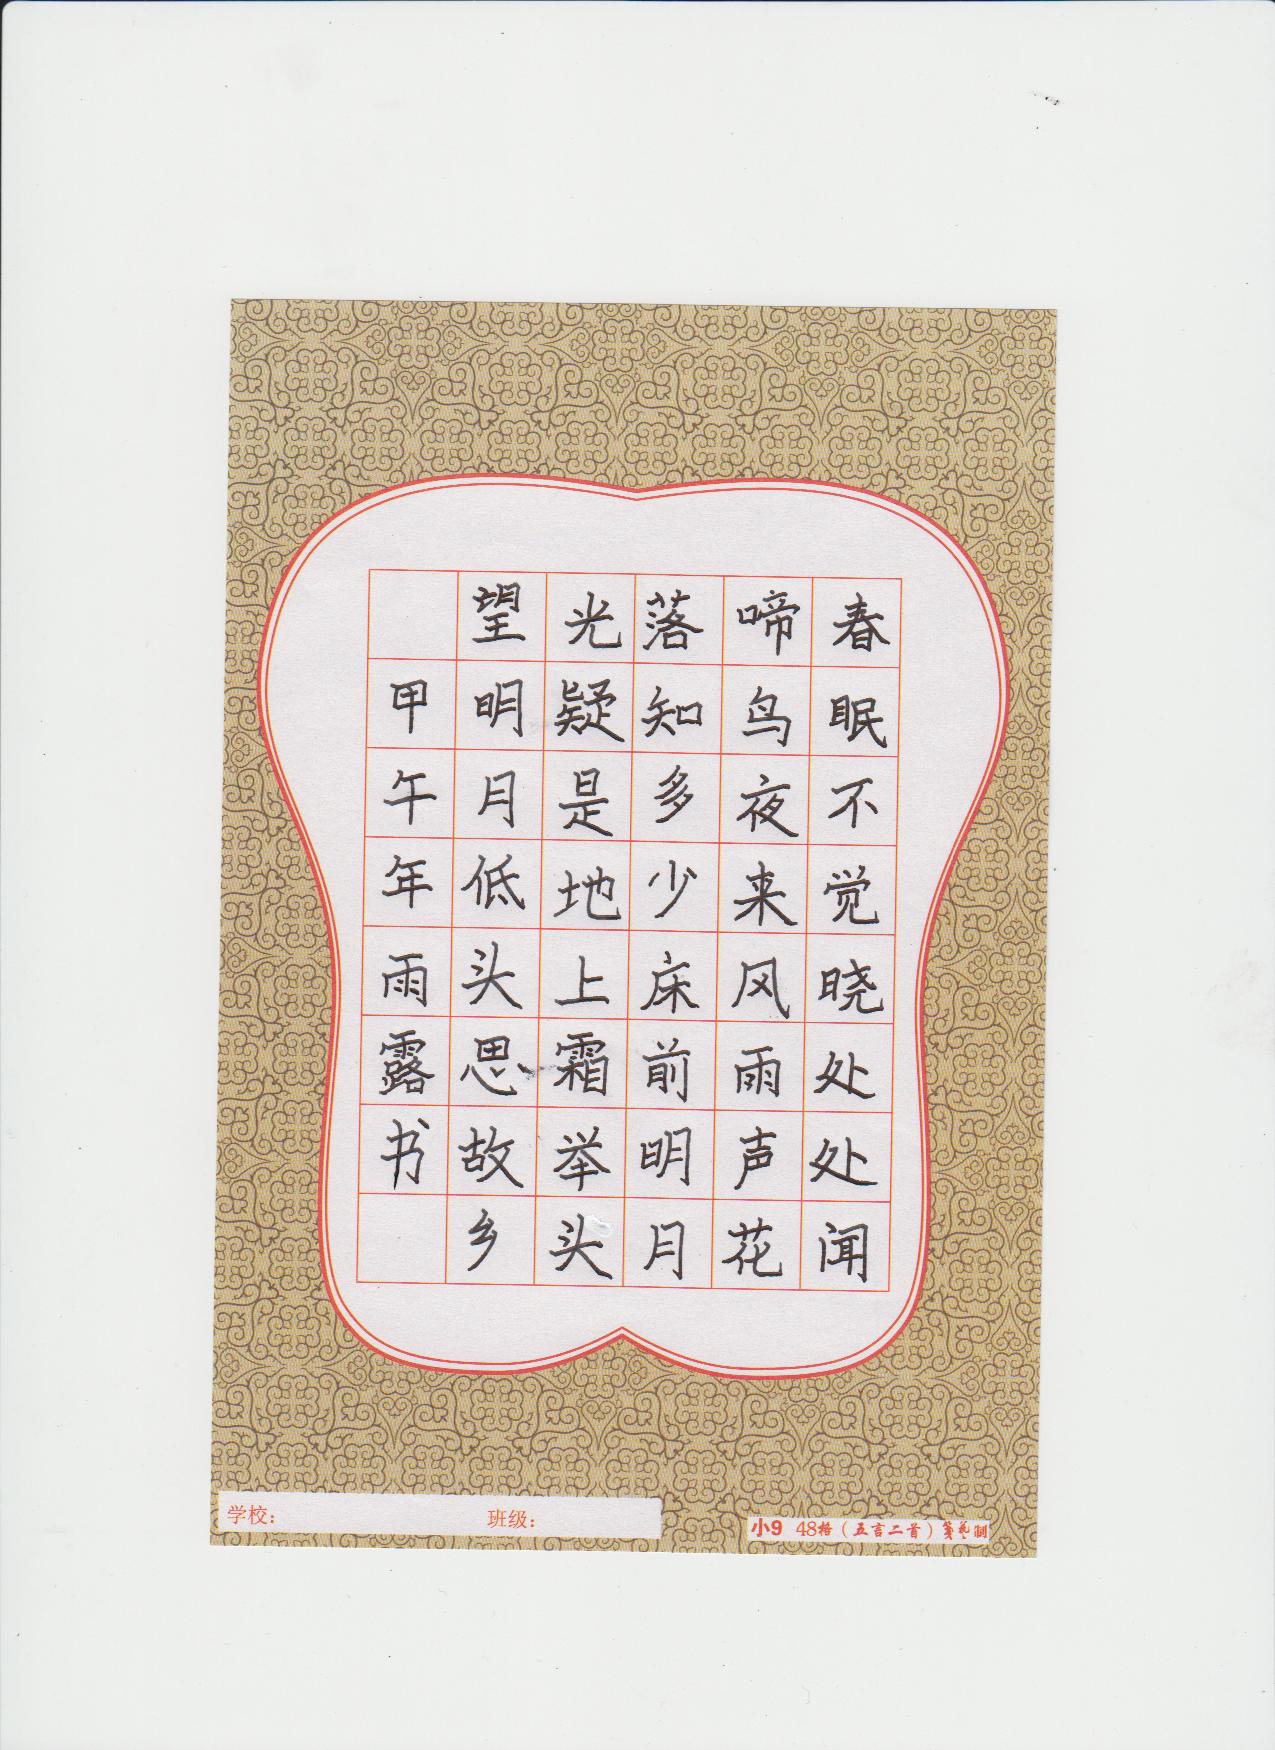 春眠不觉晓处处闻
啼鸟夜来风雨声花
落知多少床前明月
光疑是地上霜举头
望明月低头思故乡
甲午年雨露书
学校： 班级：
小9 48格（五言二首）笺艺制